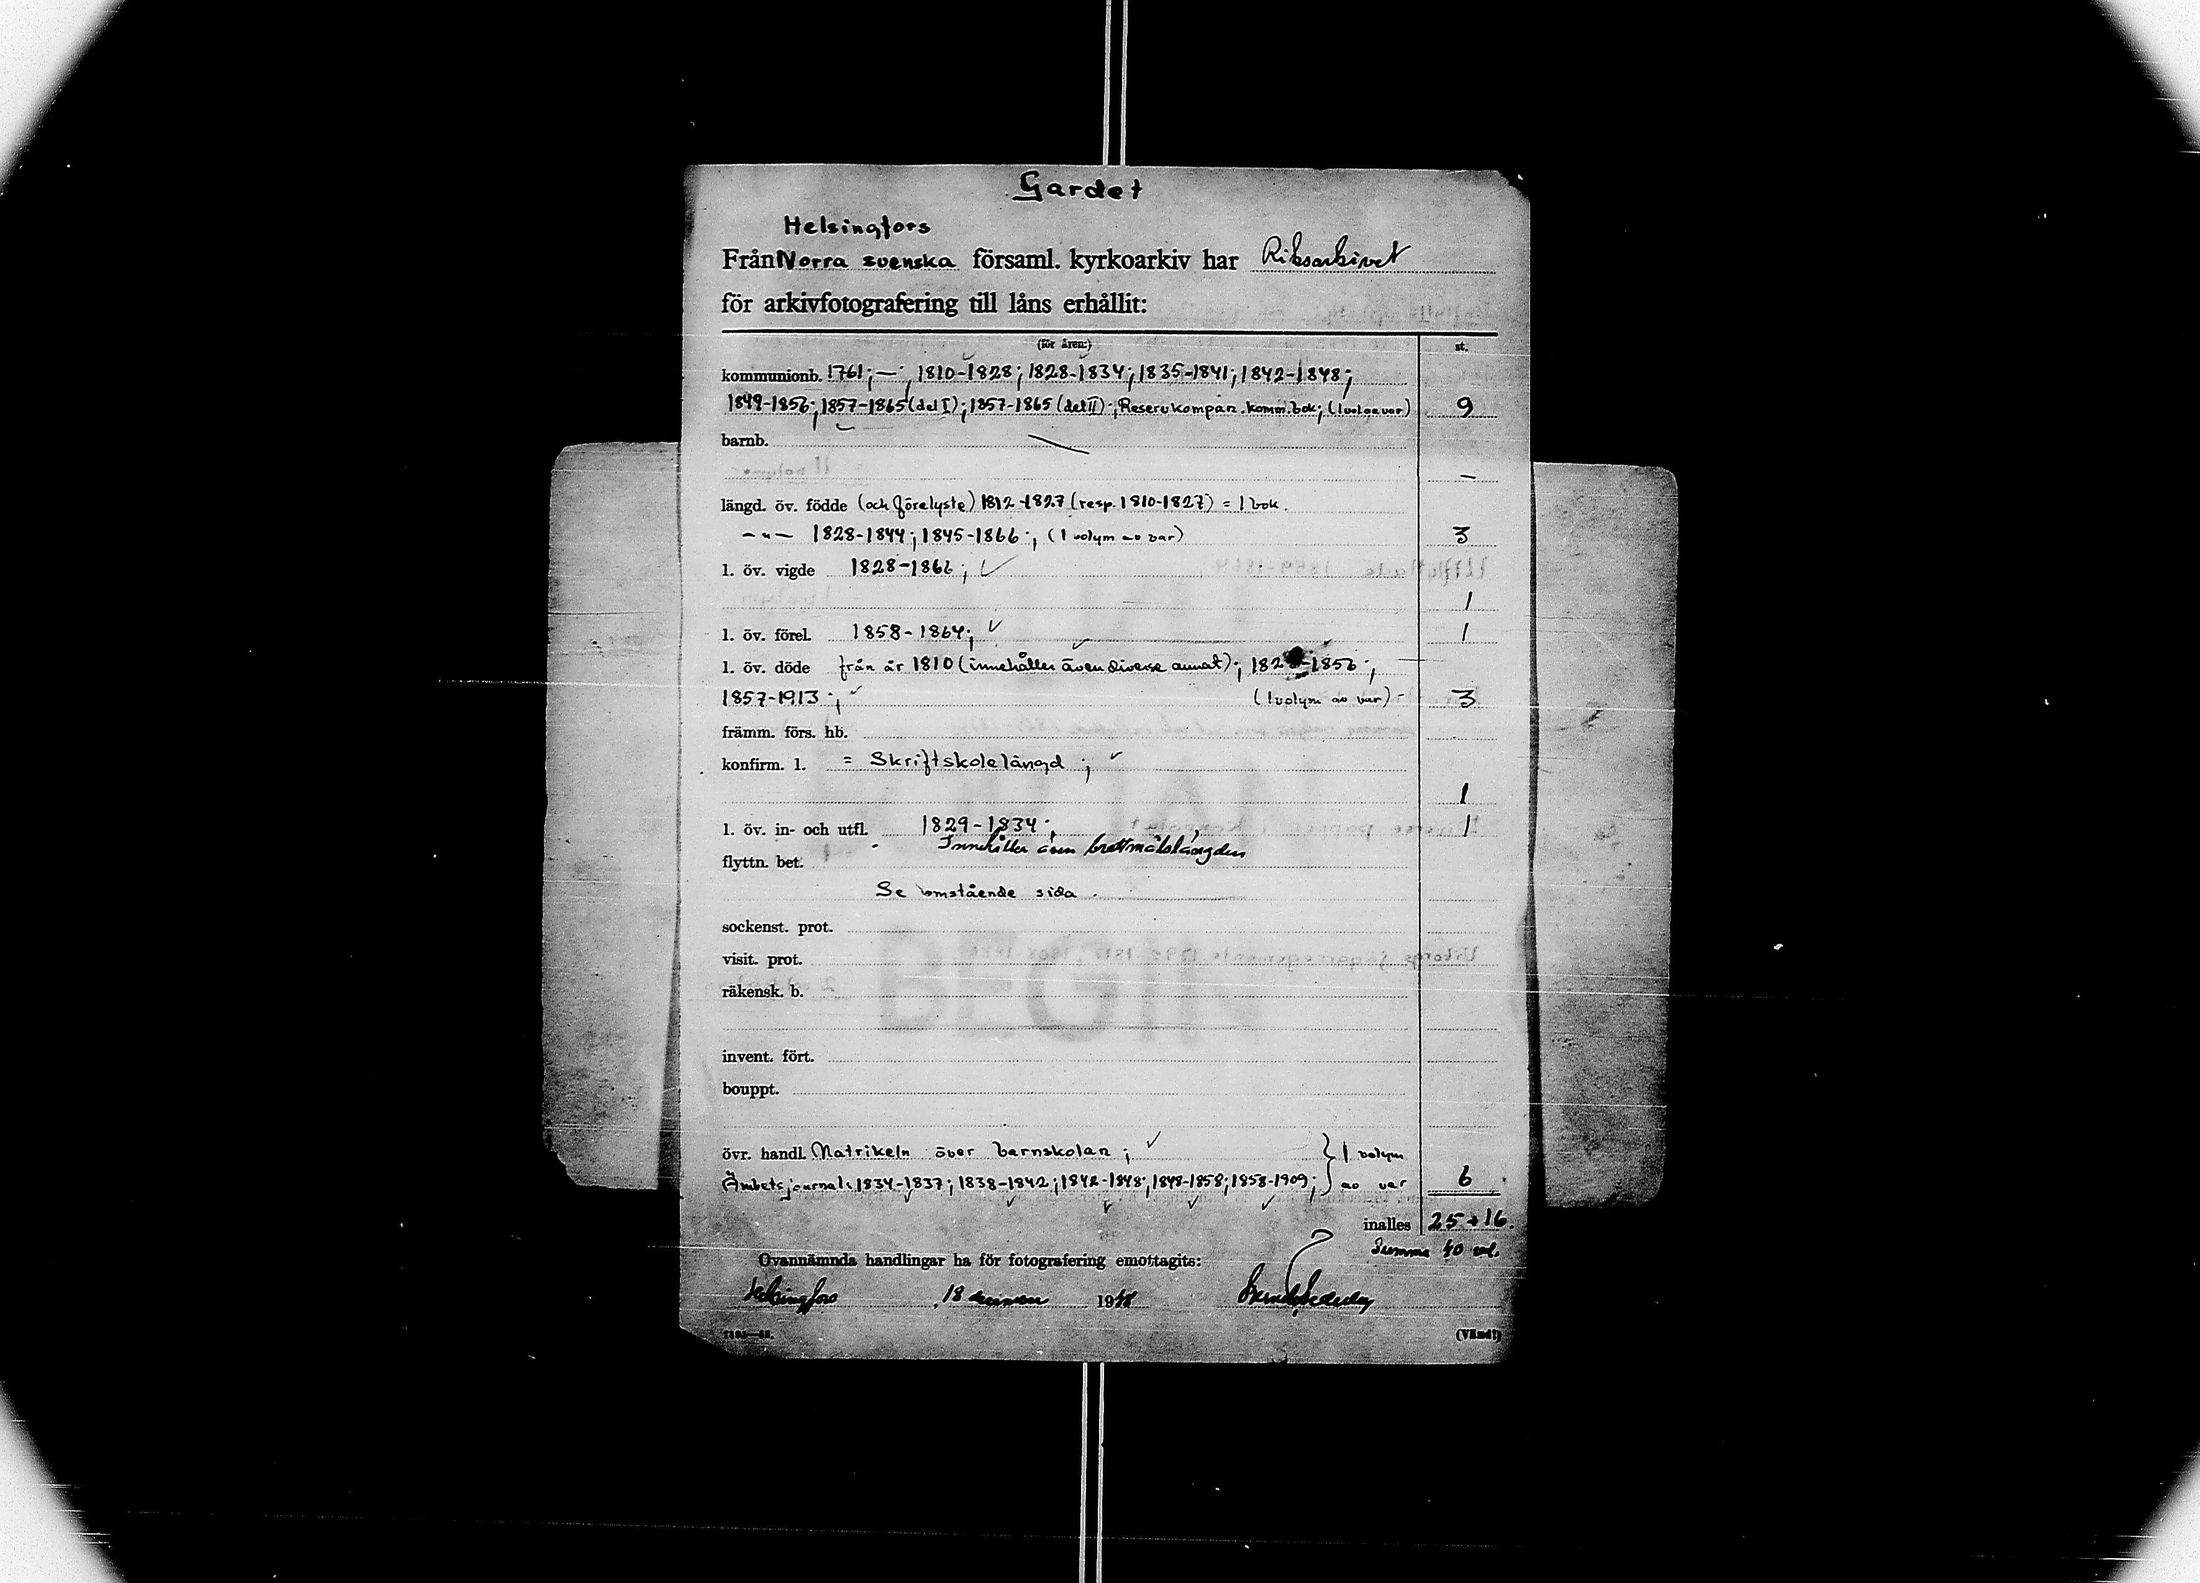 Gardet
Helsingfors
Från Norra svenska församl. kyrkoarkiv har Riksarkivet
för arkivfotografering till låns erhållit:
(för åren:) st.
kommunionb. 1761; —; 1810-1828; 1828-1834; 1835-1841; 1842-1848;
1849-1856; 1857-1865 (del I); 1857-1865 (del II); Reservkompan. komm.bok; (1 vol. av var) 9
barnb.
—
längd. öv. födde (och förelyste) 1812-1827 (resp. 1810-1827) = 1 bok.
—"— 1828-1844; 1845-1866; (1 volym av var) 3
l. öv. vigde 1828-1866;
1
l. öv. förel. 1858-1864; 1
l. öv. döde från år 1810 (innehåller även diverse annat); 182 -1856;
1857-1913; (1 volym av var) - 3
främm. förs. hb.
konfirm. l. = Skriftskolelängd;
1
l. öv. in- och utfl. 1829-1834; 1
Innehåller även brottmålslängden
flyttn. bet.
Se omstående sida.
sockenst. prot.
visit. prot.
räkensk. b.
invent. fört.
bouppt.
övr. handl. Matrikeln över barnskolan; } 1 volym
Ämbetsjournal: 1834-1837; 1838-1842; 1842-1848; 1848-1858; 1858-1909; } av var 6
inalles 25+16.
Summa 40 vol.
Ovannämnda handlingar ha för fotografering emottagits:
Helsingfors, 18 1948
(Vänd!)